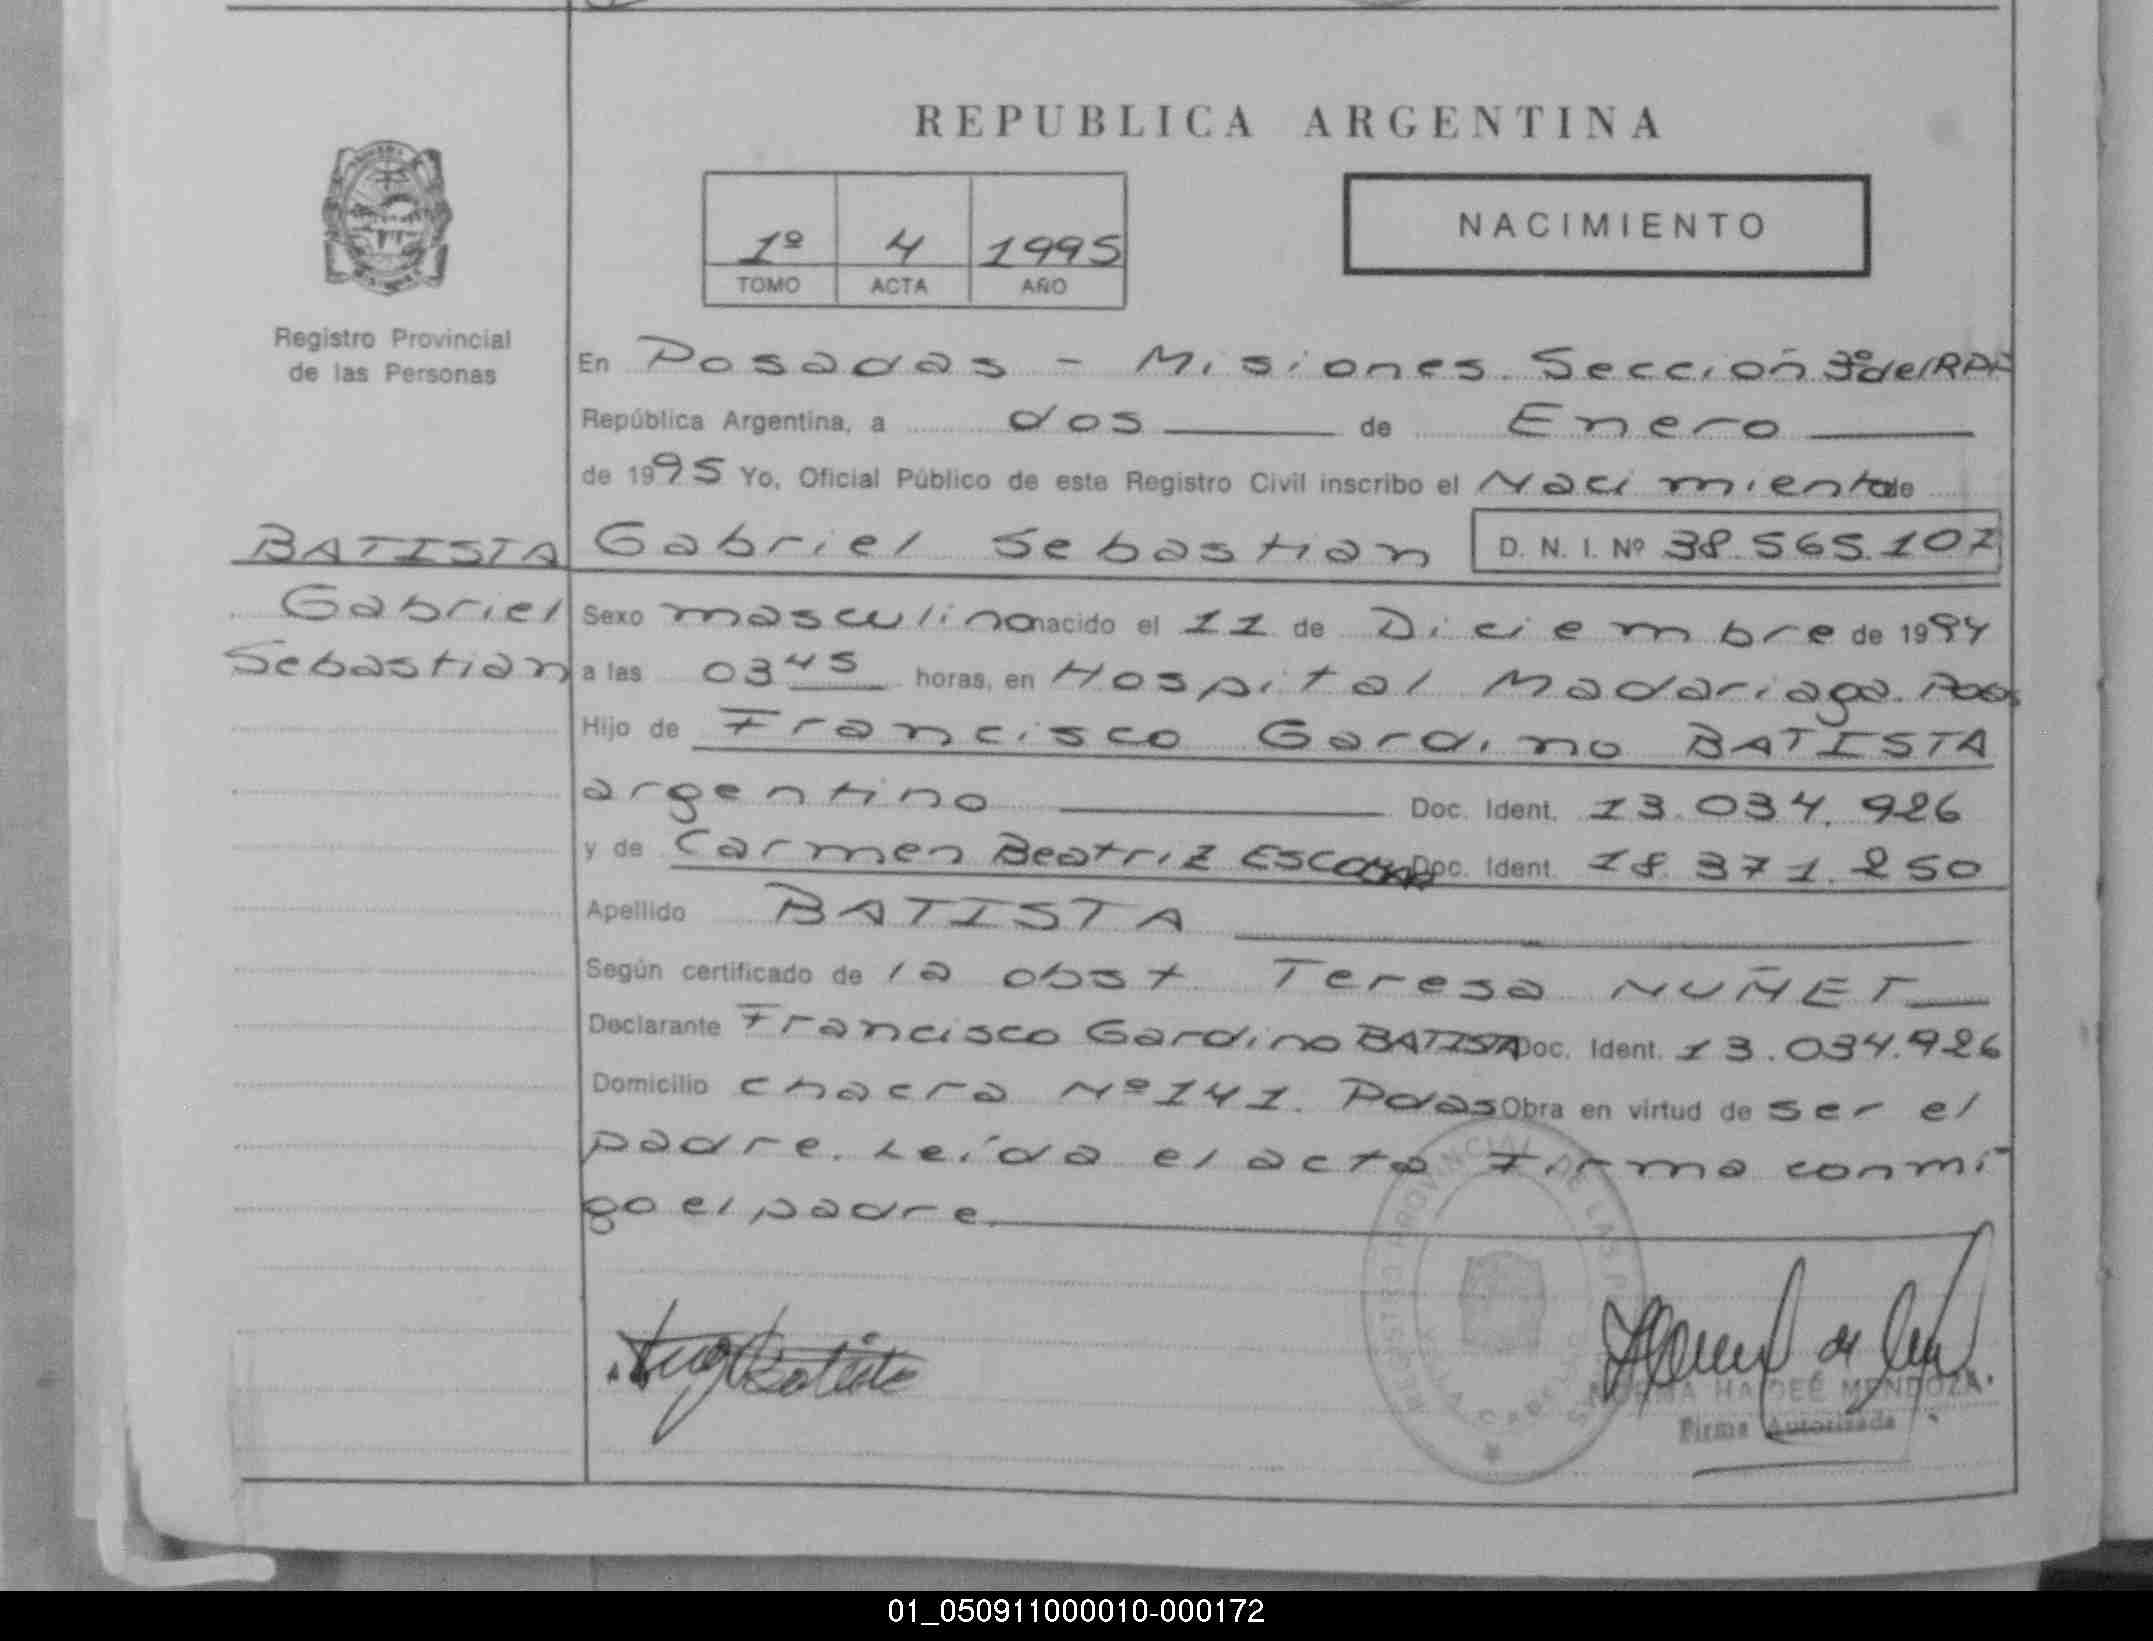 REPUBLICA ARGENTINA
1º 4 1995
TOMO ACTA AÑO
NACIMIENTO
Registro Provincial
de las Personas
En Posadas - Misiones. Sección 3ª del RPP
República Argentina, a dos de Enero
de 1995 Yo, Oficial Público de este Registro Civil inscribo el Nacimiento de
BATISTA Gabriel Sebastian D. N. I. Nº 38.565.107
Gabriel
Sebastian
Sexo masculino nacido el 11 de Diciembre de 1994
a las 03 45 horas, en Hospital Madariaga. Pdas
Hijo de Francisco Gardino BATISTA
argentino Doc. Ident. 13.034.926
y de Carmen Beatriz Doc. Ident. 18.371.250
Apellido BATISTA
Según certificado de la obst Teresa NUÑEZ
Declarante Francisco Gardino BATISTA Doc. Ident. 13.034.926
Domicilio chacra Nº 141. Pdas Obra en virtud de ser el
padre. Leída el acta firma conmi
go el padre.
REGISTRO PROVINCIAL DE LAS
NORMA HAIDEÉ MENDOZA
Firma Autorizada
01_050911000010-000172